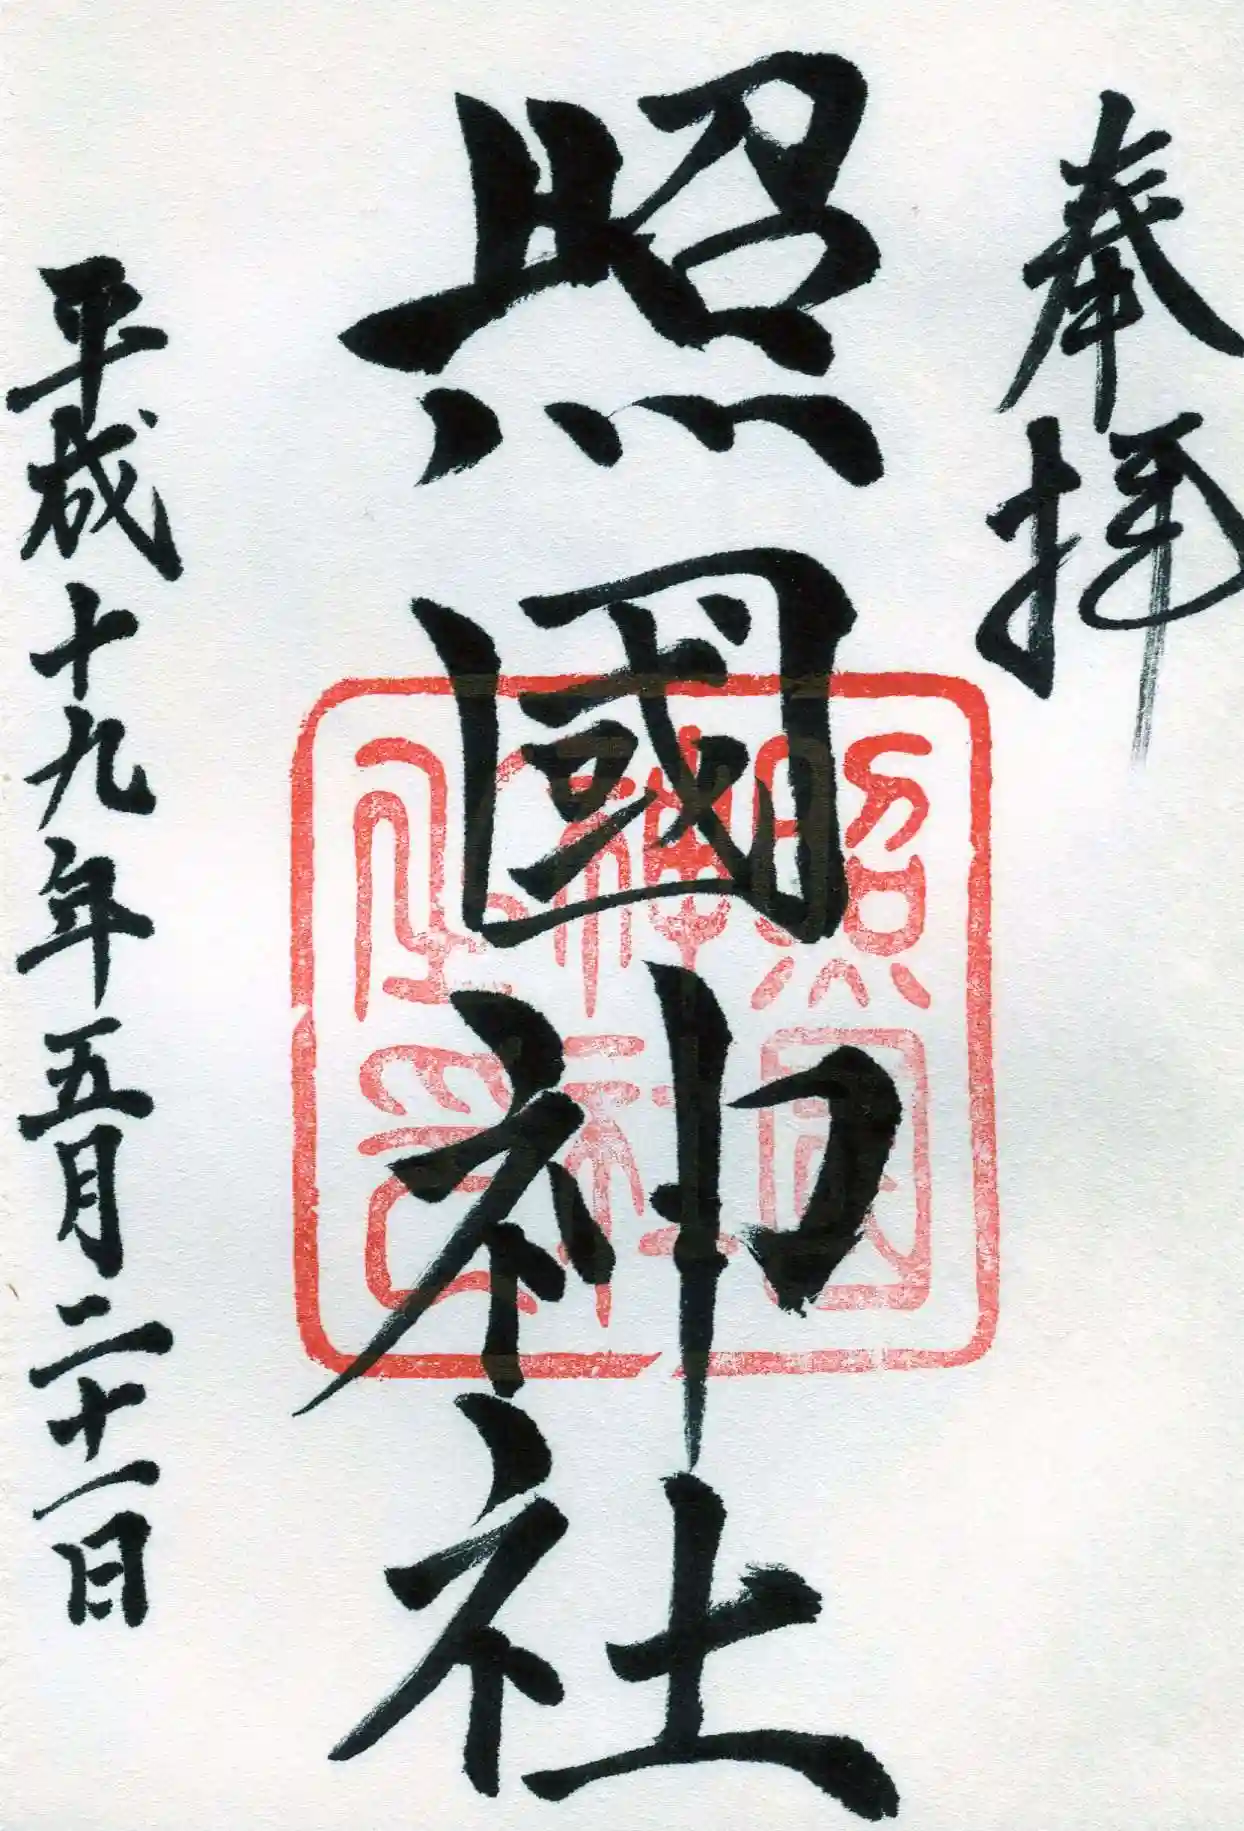 奉拝
照國神社
照國
神社
之印
平成十九年五月二十一日